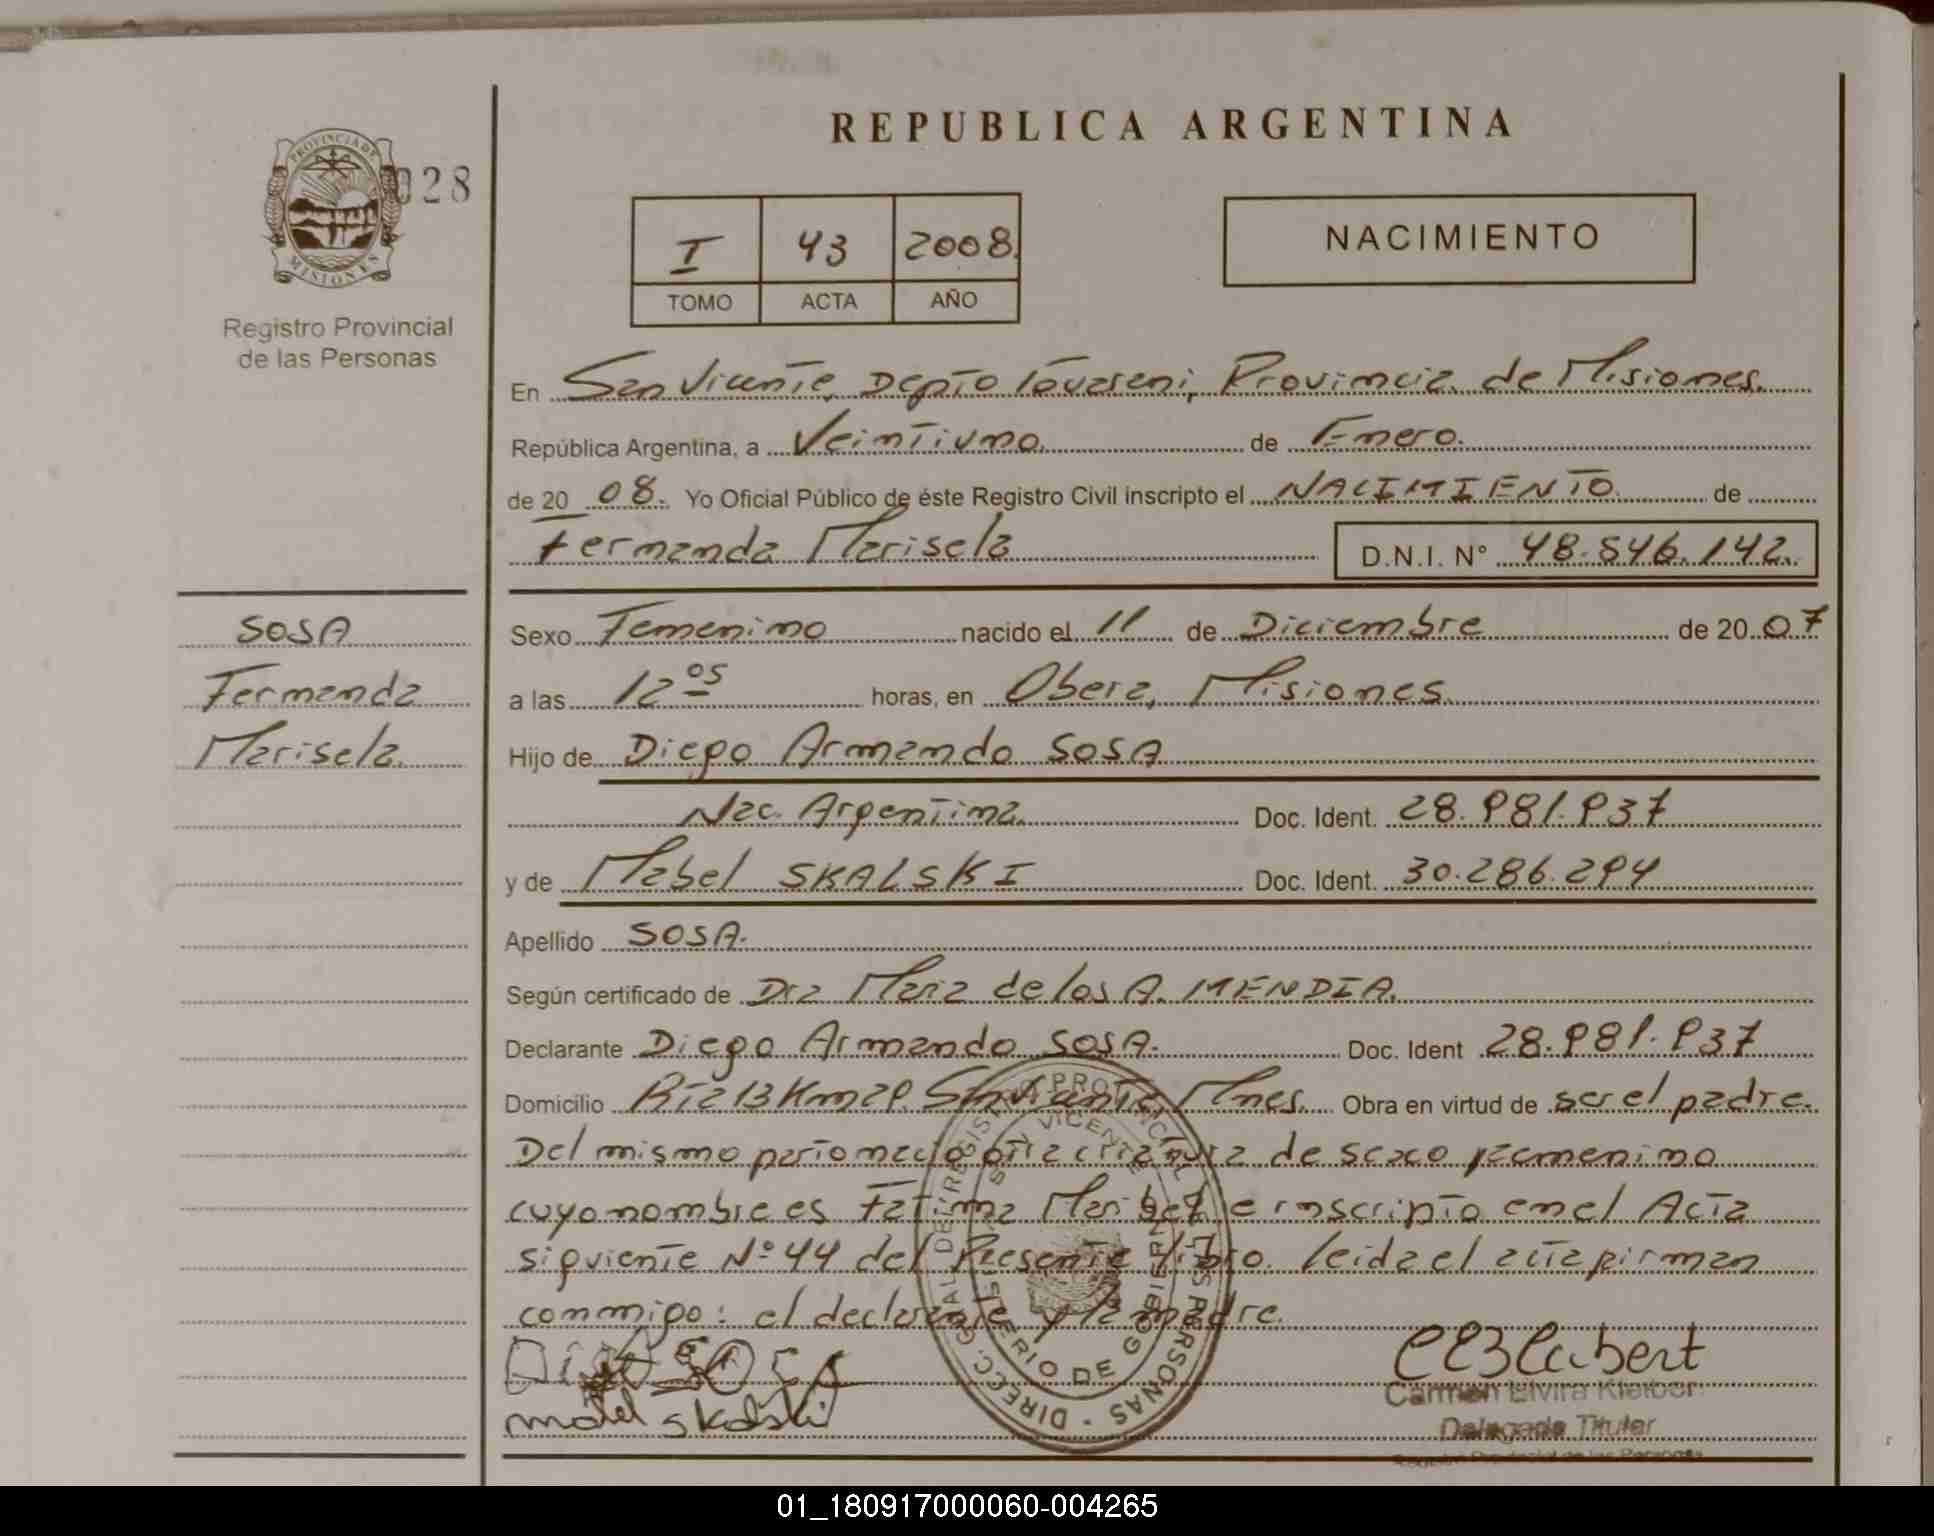 REPUBLICA ARGENTINA
PROVINCIA DE
MISIONES
028
Registro Provincial
de las Personas
I 43 2008
TOMO ACTA AÑO
NACIMIENTO
En San Vicente, Depto Guarani, Provincia de Misiones.
República Argentina, a Veintiuno. de Enero.
de 20 08. Yo Oficial Público de éste Registro Civil inscripto el NACIMIENTO de
Fernanda Marisela D.N.I. N° 48.546.142.
SOSA
Fernanda
Marisela.
Sexo Femenino nacido el 11 de Diciembre de 20 07
a las 12 05 horas, en Obera, Misiones.
Hijo de Diego Armando SOSA
Nac. Argentina. Doc. Ident. 28.981.937
y de Mabel SKALSKI Doc. Ident. 30.286.294
Apellido SOSA.
Según certificado de Dra Maria de los A. MENDIA.
Declarante Diego Armando SOSA. Doc. Ident 28.981.937
Domicilio Rta 13 Km 29. San Vicente Mnes. Obra en virtud de ser el padre.
Del mismo parto nació otra criatura de sexo femenino
cuyo nombre es Fatima Maribel e inscripto en el Acta
siguiente Nº 44 del Presente libro. leida el acta firman
conmigo: el declarante y la madre.
mabel skalski
Carmen Elvira Kleiber
Delegada Titular
Registro Provincial de las Personas
DIRECC. GRAL DEL REGISTRO PROVINCIAL DE LAS PERSONAS
SAN VICENTE
MINISTERIO DE GOBIERNO
01_180917000060-004265